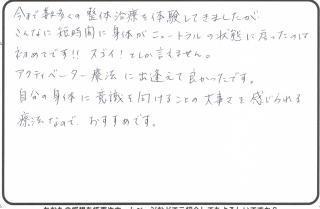 今まで数多くの整体治療を体験してきましたが
こんなに短時間に身体がニュートラルの状態に戻ったのは
初めてです!! スゴイ！としか言えません。
アクティベーター療法に出逢えて良かったです。
自分の身体に意識を向けることの大事さを感じられる
療法なので、おすすめです。